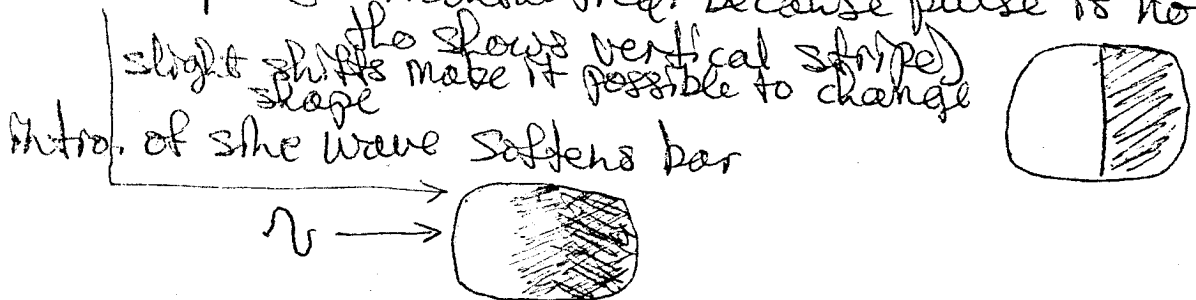 freq. because pulse is no
tho shows vertical stripe)
slight shifts make it possible to change
shape
intro. of sine wave softens bar